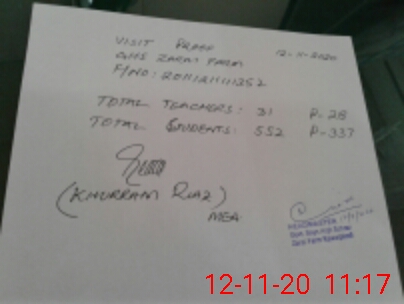 VISIT PROOF 12-11-2020
GHS ZARAI FARM
F/NO: 20111211111252
TOTAL TEACHERS: 31 P-28
TOTAL STUDENTS: 552 P-337
(KHURRAM RIAZ)
MEA
HEADMASTER
Govt. High School
Zarai Farm Rawalpindi
12-11-20 11:17